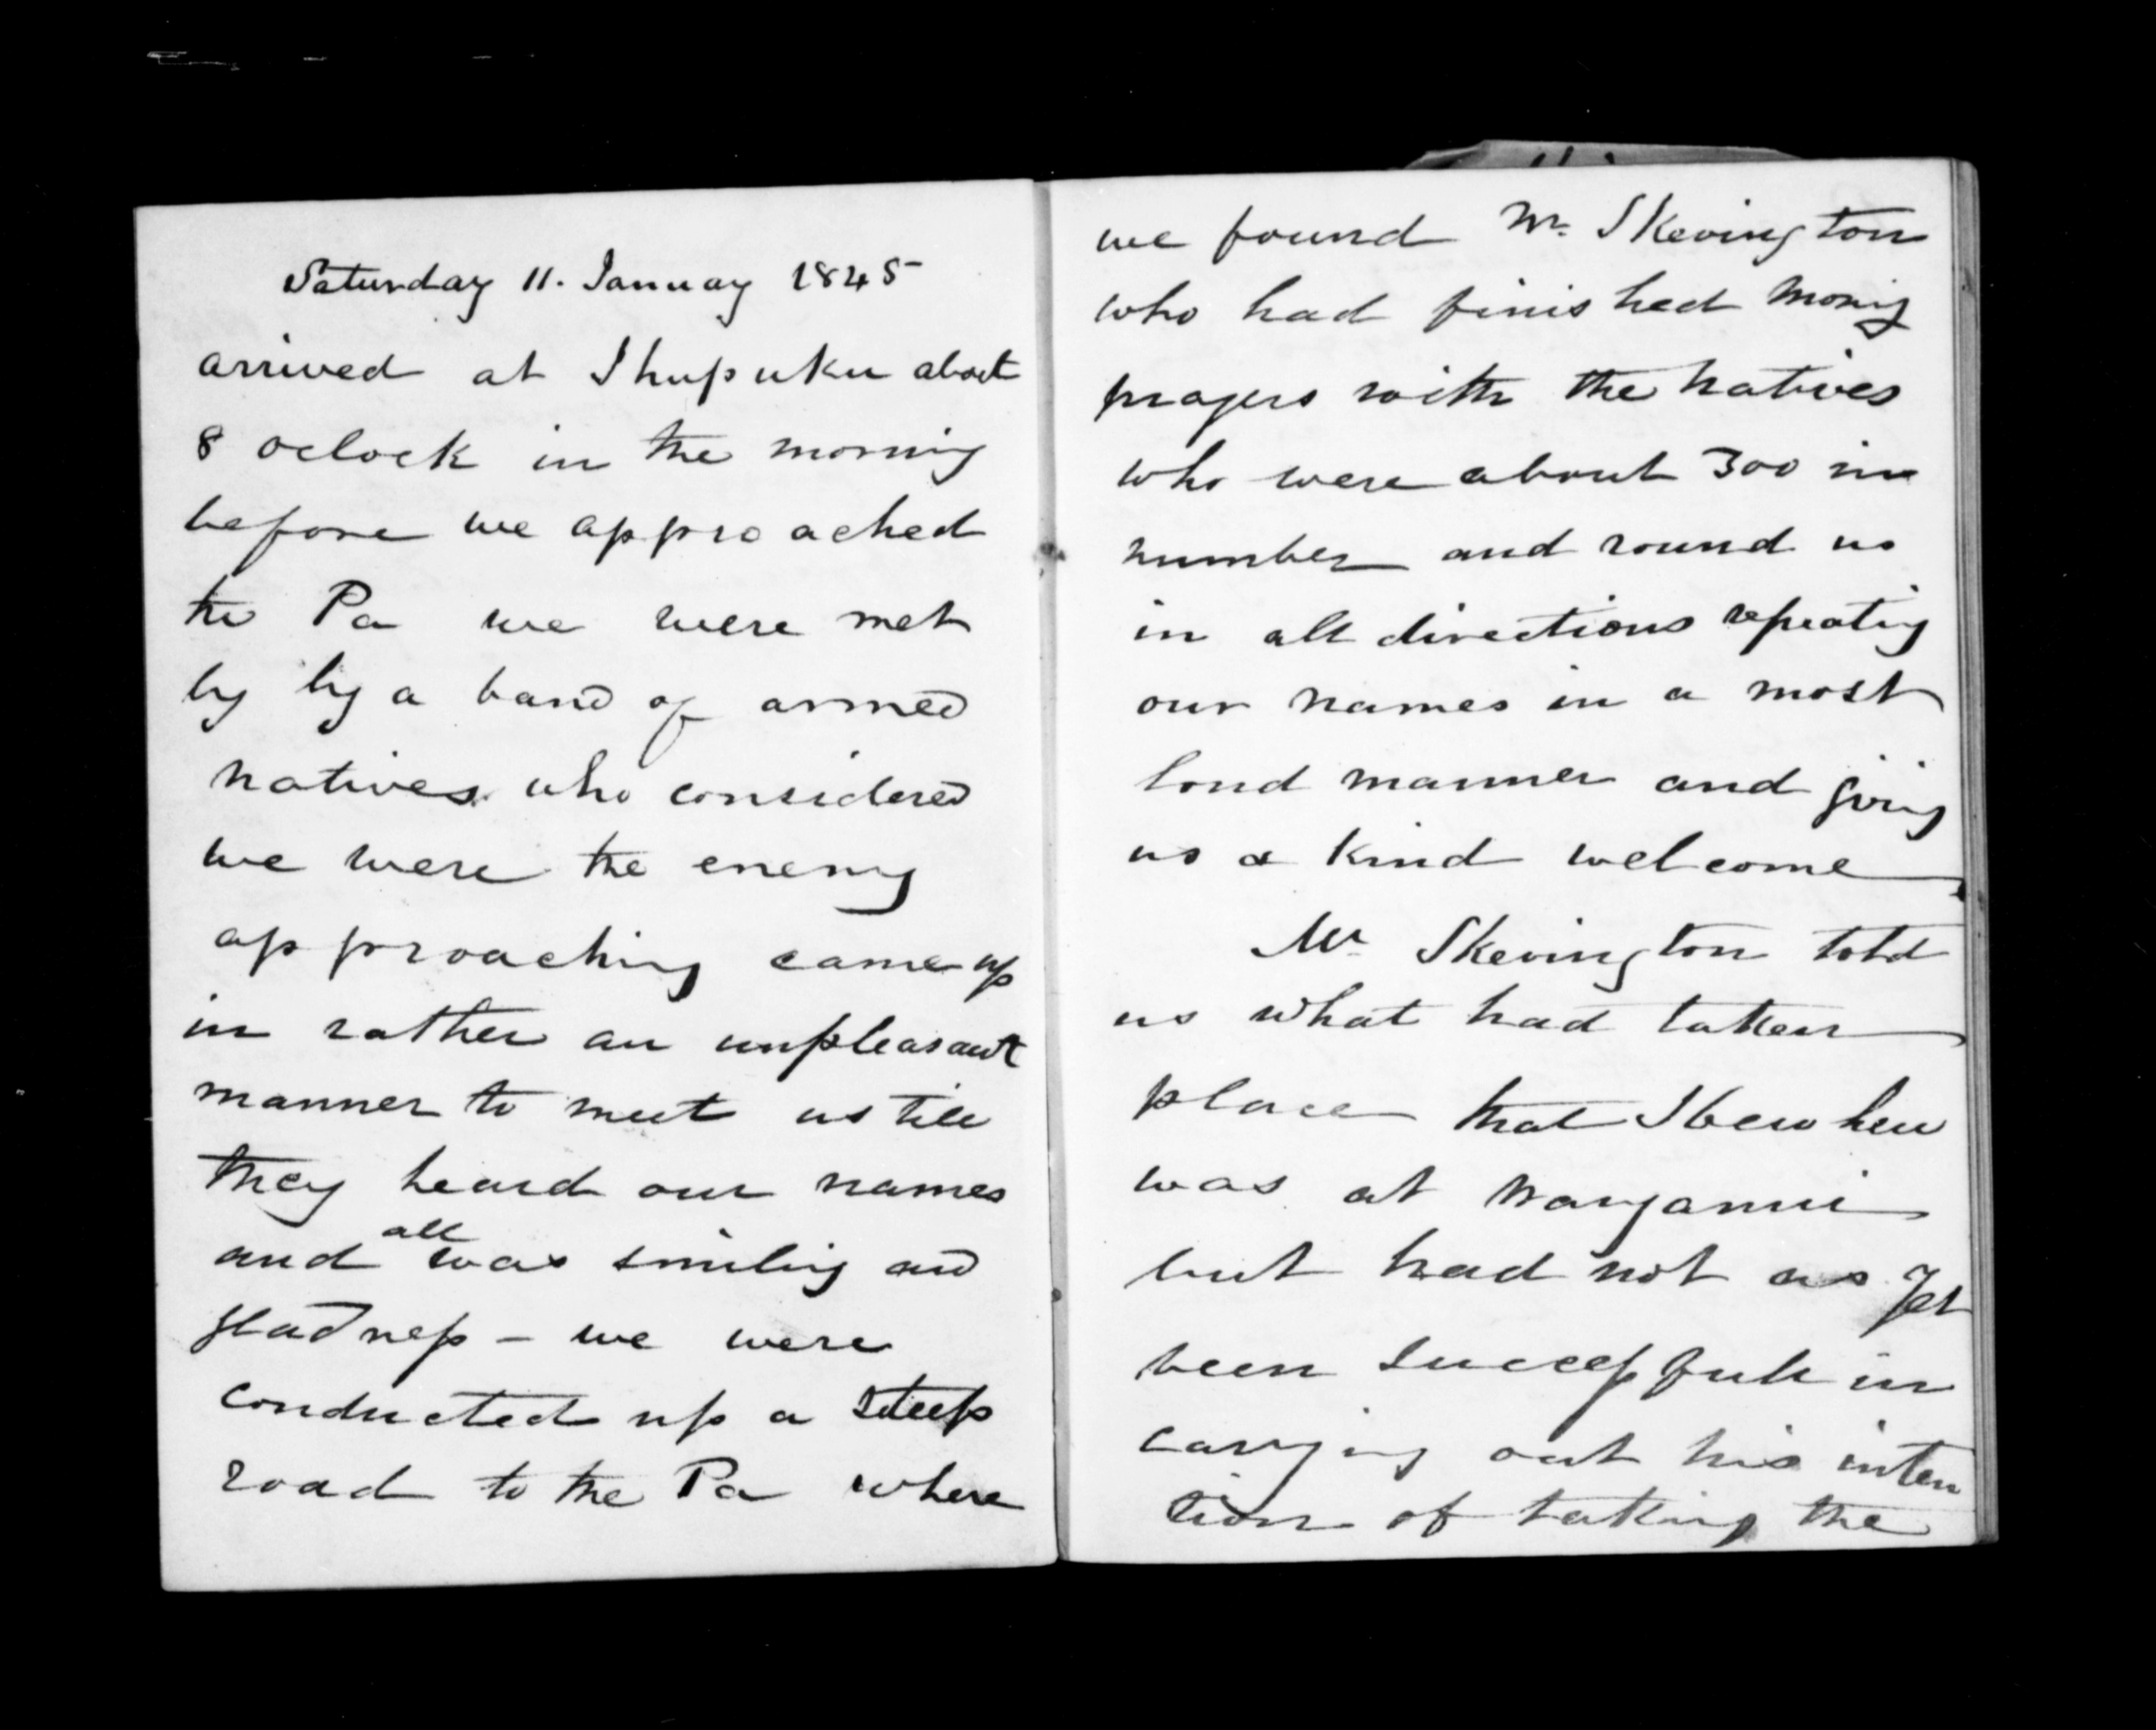 Saturday 11. January 1845
arrived at Ihupuku about
8 oclock in the morning
before we approached
the Pa we were met
by by a band of armed
natives who considered
we were the enemy
approaching came up
in rather an unpleasant
manner to meet us till
they heard our names
all
and was smiling and
gladness - we were
conducted up a steep
road to the Pa where
we found Mr. Skevington
who had finished morng
prayers with the natives
who were about 300 in
number and round us
in all directions repeating
our names in a most
loud manner and giving
us a kind welcome
Mr. Skevington told
us what had taken
place that
was at Wanganui
but had not as yet
been successfull in
carrying out his inten
tion of taking the